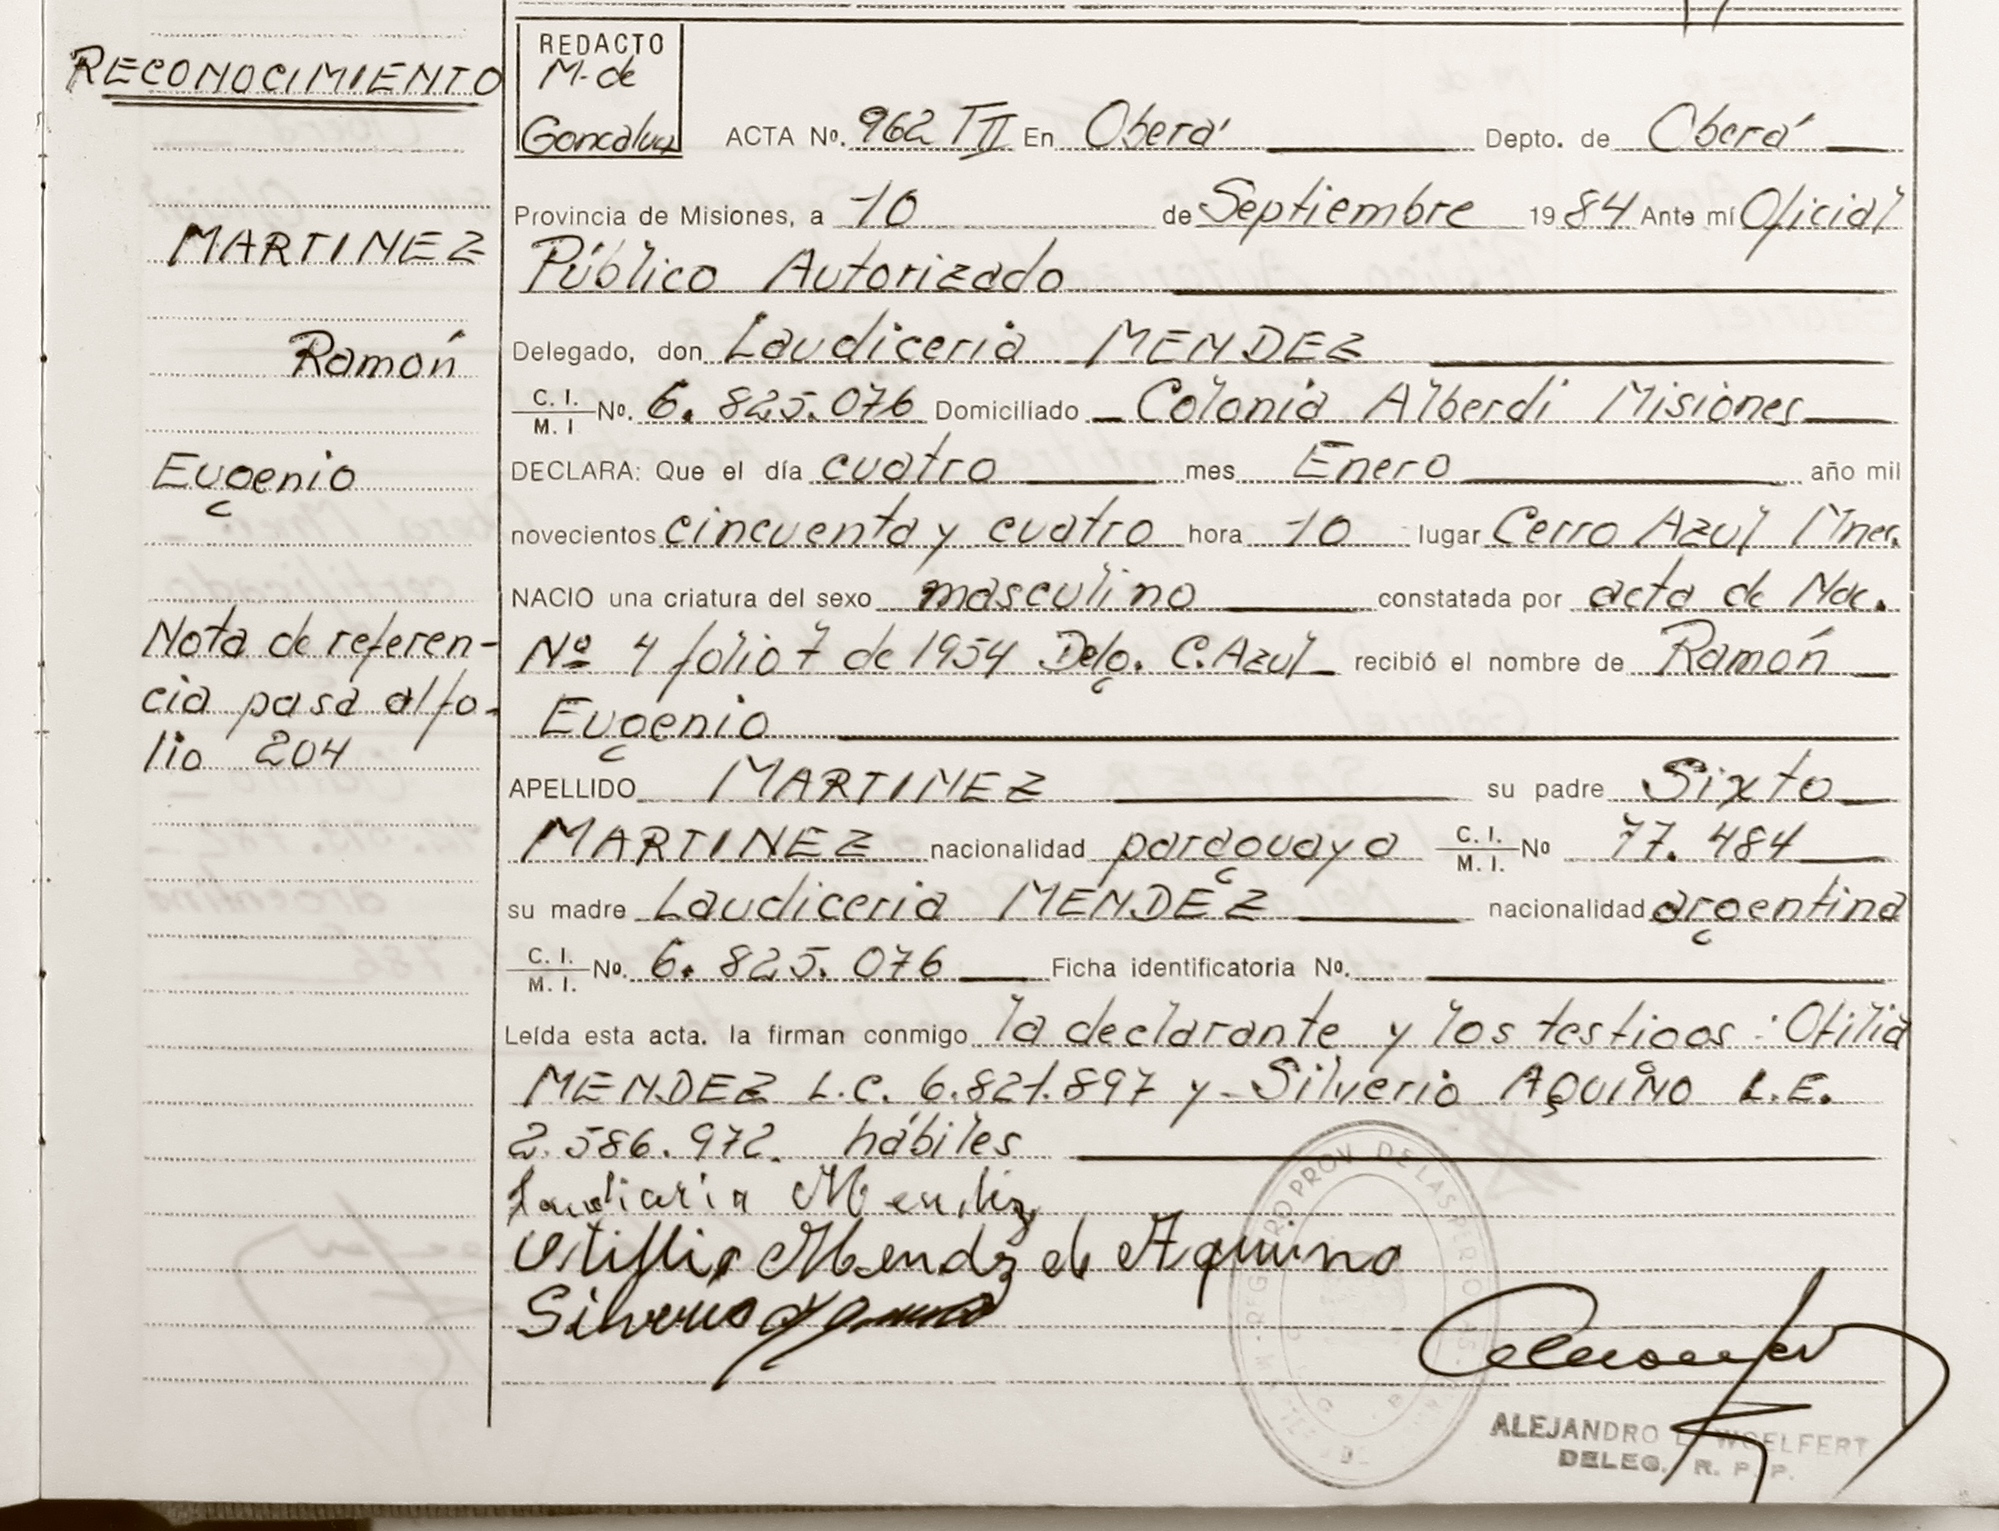 RECONOCIMIENTO
MARTINEZ
Ramón
Eugenio
Nota de referen-
cia pasa al fo-
lio 204
REDACTO
M. de
Goncalvez
ACTA Nº. 962 TII En Oberá Depto. de Oberá
Provincia de Misiones, a 10 de Septiembre 1984 Ante mí Oficial
Público Autorizado
Delegado, don Laudiceria MENDEZ
C. I. / M. I Nº. 6. 825. 076 Domiciliado Colonia Alberdi Misiones
DECLARA: Que el día cuatro mes Enero año mil
novecientos cincuenta y cuatro hora 10 lugar Cerro Azul Mnes.
NACIO una criatura del sexo masculino constatada por acta de Nac.
Nº 4 folio 7 de 1954 Delg. C. Azul recibió el nombre de Ramón
Eugenio
APELLIDO MARTINEZ su padre Sixto
MARTINEZ nacionalidad paraguaya C. I. / M. I. Nº 77. 484
su madre Laudiceria MENDEZ nacionalidad argentina
C. I. / M. I. Nº. 6. 825. 076 Ficha identificatoria Nº.
Leída esta acta. la firman conmigo la declarante y los testigos : Otilia
MENDEZ L.C. 6.821.897 y Silverio AQUINO L.E.
2.586.972. hábiles
Otillia Mendz de Aquino
Silverio
REGISTRO PROV. DE LAS PERSONAS
ALEJANDRO L. WOELFERT
DELEG. R. P. P.